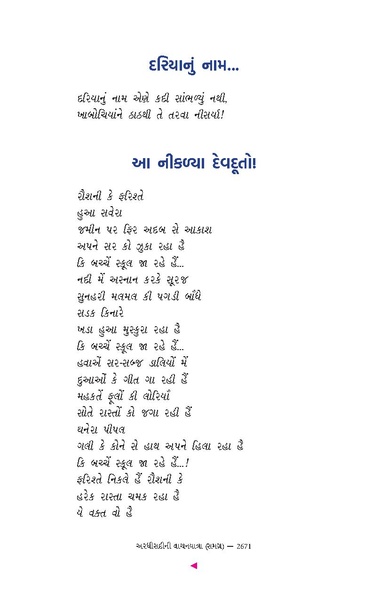 દરિયાનું નામ...
દરિયાનું નામ એણે કદી સાંભળ્યું નથી,
ખાબોચિયાંને ઠાઠથી તે તરવા નીસર્યા!
આ નીકળ્યા દેવદૂતો!
રૌશની કે ફરિશ્તે
હુઆ સવેરા
જમીન પર ફિર અદબ સે આકાશ
અપને સર કો ઝુકા રહા હૈ
કિ બચ્ચેં સ્કૂલ જા રહે હૈં...
નદી મેં અસ્નાન કરકે સૂરજ
સુનહરી મલમલ કી પગડી બાઁધે
સડક કિનારે
ખડા હુઆ મુસ્કુરા રહા હૈ
કિ બચ્ચેં સ્કૂલ જા રહે હૈં...
હવાએઁ સર-સબ્જ ડાલિયોં મેં
દુઆઓઁ કે ગીત ગા રહી હૈં
મહકતેં ફૂલોં કી લોરિયાઁ
સોતે રાસ્તોં કો જગા રહી હૈં
ઘનેરા પીપલ
ગલી કે કોને સે હાથ અપને હિલા રહા હૈ
કિ બચ્ચેં સ્કૂલ જા રહે હૈં...!
ફરિશ્તે નિકલે હૈં રૌશની કે
હરેક રાસ્તા ચમક રહા હૈ
યે વક્ત વો હૈ
અરધીસદીની વાચનયાત્રા (સમગ્ર) — 2671